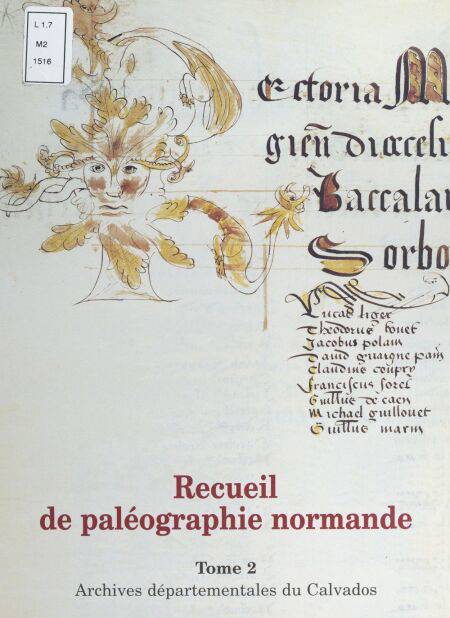 L 1.7
M2
1516
Rectoria M
gień diœcesi
Baccalau
Sorbo
Lucas liger
Theodorus bouet
Jacobus polain
Dauid guaigne pain
Claudius coupry
Franciscus sorel
Guillũs de caen
Michael guillouet
Guillũs marin
Recueil
de paléographie normande
Tome 2
Archives départementales du Calvados